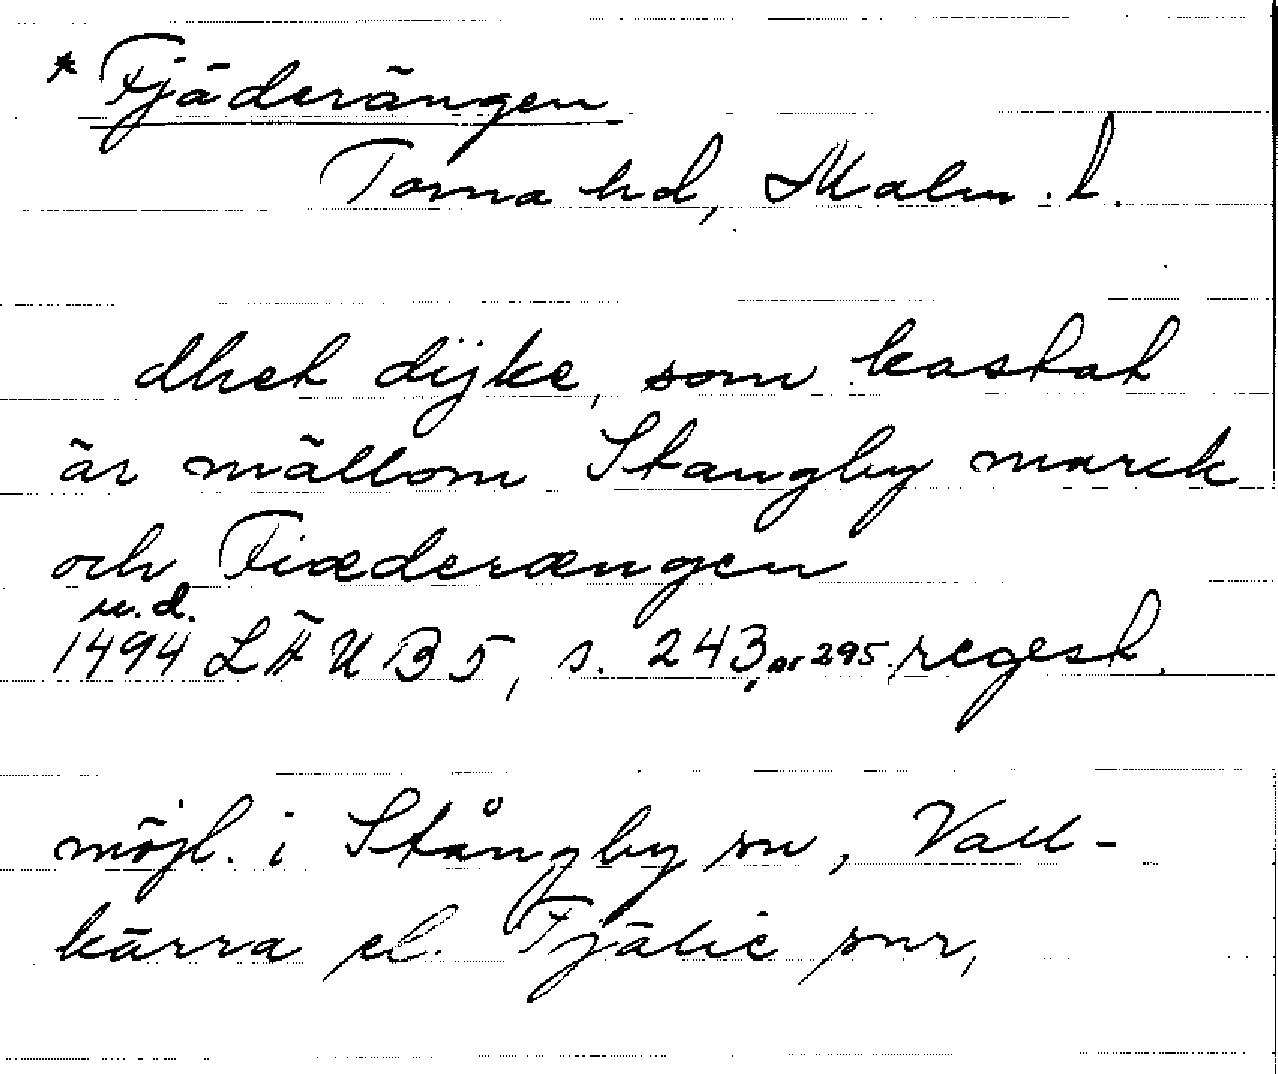 * Fjäderängen
Torna hd, Malm. l.
dhet dijke, som kastat
är mällom Stangby marck
och Fiæderængen
u.d.
1494 LÄUB 5, s. 243, nr 295. regest.
möjl. i Stångby sn, Vall-
kärra el. Fjälie snr,